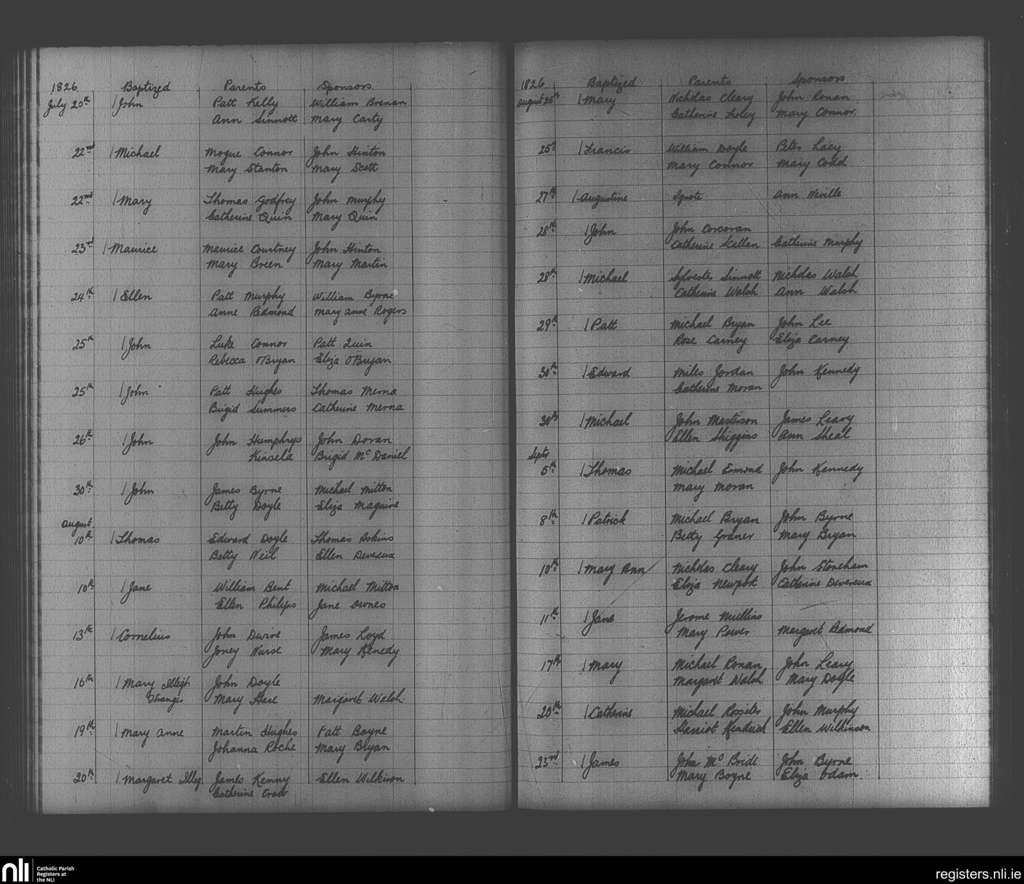 1826 Baptized Parents Sponsors
July 20th 1 John Patt Kelly William Brenan
Ann Sinnott Mary Carty
22nd 1 Michael Mogue Connor John Hinton
Mary Stanton Mary Scott
22nd 1 Mary Thomas Godfrey John Murphy
Catherine Quin Mary Quin
23rd 1 Maurice Maurice Courtney John Hinton
Mary Breen Mary Martin
24th 1 Ellen Patt Murphy William Byrne
Anne Redmond Mary Anne Rogers
25th 1 John Luke Connor Patt Quin
Rebecca O'Bryan Eliza O'Bryan
25th 1 John Patt Hughes Thomas Merna
Brigid Summers Catherine Merna
26th 1 John John Humphrys John Doran
Kinsela Brigid McDaniel
30th 1 John James Byrne Michael Mitton
Betty Doyle Eliza Maguire
August
10th 1 Thomas Edward Doyle Thomas
Betty Neil Ellen Devereux
10th 1 Jane William Bent Michael Mitton
Ellen Philips Jane
13th 1 Cornelius John James Loyd
Joney Mary Kenedy
16th 1 Mary Illegt John Doyle
Mary Hare Margaret Walsh
19th 1 Mary Anne Martin Hughes Patt Bayne
Johanna Roche Mary Bryan
20th 1 Margaret Illeg. James Kenny Ellen Wilkinson
Catherine
1826 Baptized Parents Sponsors
August 25th 1 Mary Nicholas Cleary John Ronan
Catherine Foley Mary Connor
25th 1 Francis William Doyle Peter Lacy
Mary Connor Mary Codd
27th 1 Augustine Ignote Ann Neville
28th 1 John John Corcoran
Catherine Catherine Murphy
28th 1 Michael Sylvester Sinnott Nicholas Walsh
Catherine Walsh Ann Walsh
29th 1 Patt Michael Bryan John Lee
Rose Carney Eliza Carney
30th 1 Edward Miles Jordan John Kennedy
Catherine Moran
30th 1 Michael John James Leary
Ellen Higgins Ann Sheal
Septr
5th 1 Thomas Michael John Kennedy
Mary Moran
8th 1 Patrick Michael Bryan John Byrne
Betty Mary Bryan
10th 1 Mary Ann Nicholas Cleary John Stoneham
Eliza Newport Catherine Devereux
11th 1 Jane Jerome Mullins
Mary Power Margaret Redmond
17th 1 Mary Michael Ronan John Leary
Margaret Walsh Mary Doyle
20th 1 Catherine Michael John Murphy
Harriot Kendrick Ellen Wilkinson
23rd 1 James John McBride John Byrne
Mary Boyne Eliza Odam
nli Catholic Parish
Registers at
the NLI
registers.nli.ie